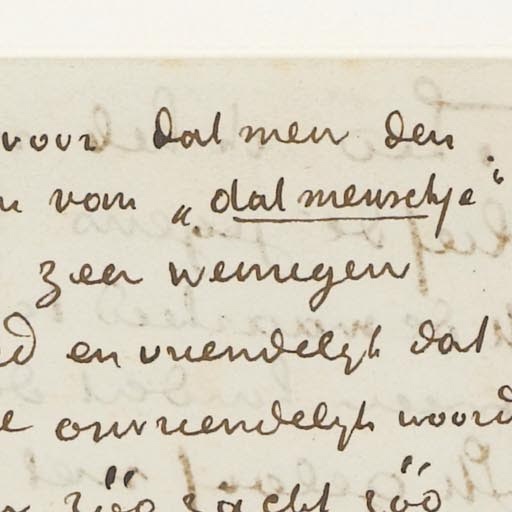 voor dat men den
van „dat menschje“
zeer weinigen
en vriendelyk dat
onvriendelyk woord
zóó zacht zóó